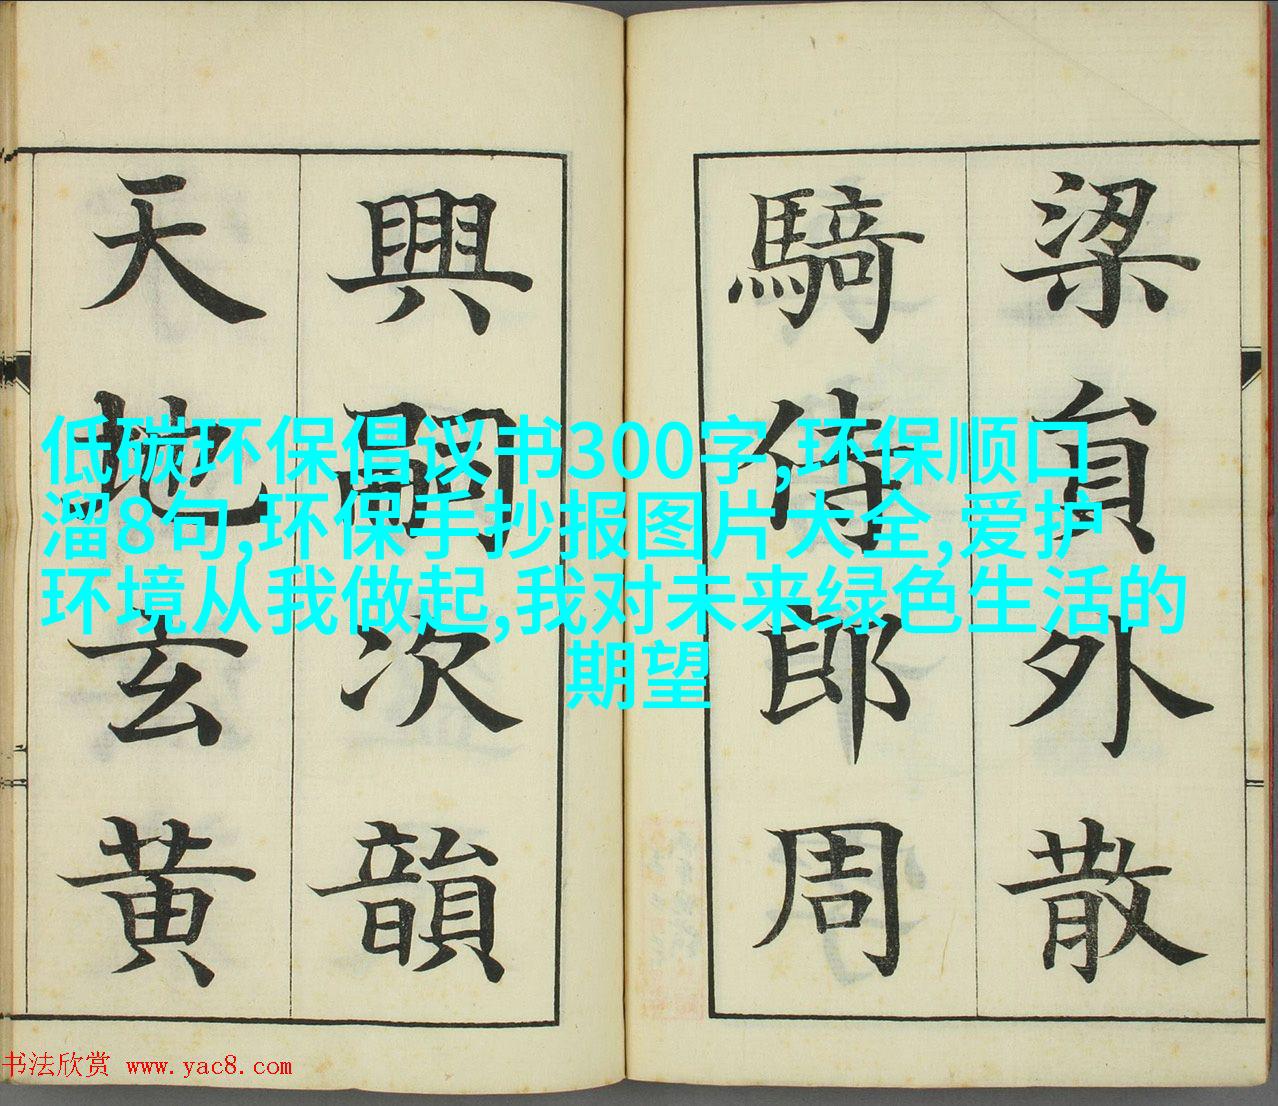 梁員外散
騎侍郎周
興嗣次韻
天地玄黄
低碳环保倡议书300字,环保顺口
溜8句,环保手抄报图片大全,爱护
环境从我做起,我对未来绿色生活的
期望
书法欣赏 www.yac8.com